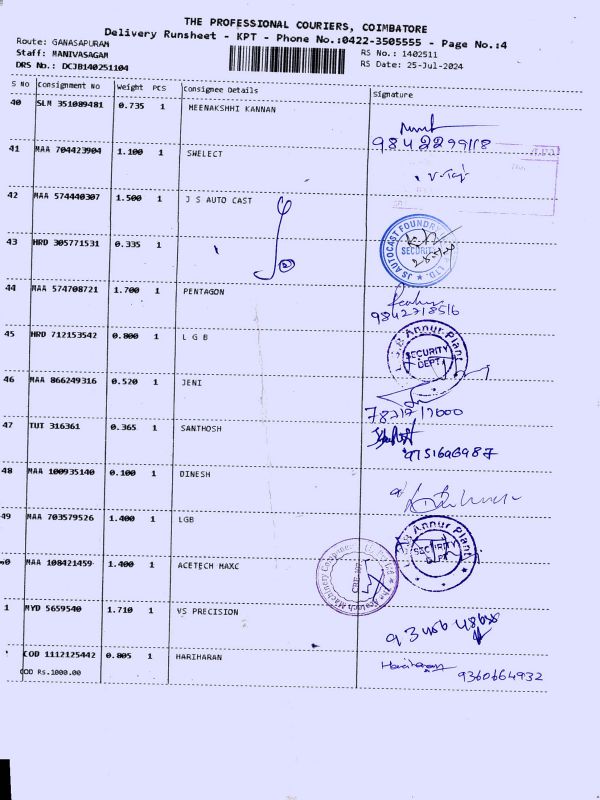 THE PROFESSIONAL COURIERS, COIMBATORE
Delivery Runsheet - KPT - Phone No.:0422-3505555 - Page No.:4
Route: GANASAPURAM RS No.: 1402511
Staff: MANIVASAGAM RS Date: 25-Jul-2024
DRS No.: DCJB140251104
S No Consignment No Weight PCS Consignee Details Signature
40 SLM 351089481 0.735 1 MEENAKSHHI KANNAN
9842299118
41 MAA 704423904 1.100 1 SWELECT
42 MAA 574440307 1.500 1 J S AUTO CAST
JS AUTOCAST FOUNDRY
SECURITY
43 HRD 305771531 0.335 1
44 MAA 574708721 1.700 1 PENTAGON
9842718516
45 HRD 712153542 0.800 1 L G B
L.G.B Annur Plant
SECURITY
DEPT
46 MAA 866249316 0.520 1 JENI
47 TUT 316361 0.365 1 SANTHOSH
9751696987
48 MAA 100935140 0.100 1 DINESH
49 MAA 703579526 1.400 1 LGB
L.G.B Annur Plant
SECURITY
DEPT
0 MAA 108421459 1.400 1 ACETECH MAXC
Machinery Components
1 MYD 5659540 1.710 1 VS PRECISION
COD 1112125442 0.805 1 HARIHARAN
Hariharan 9360664932
COD Rs.1000.00